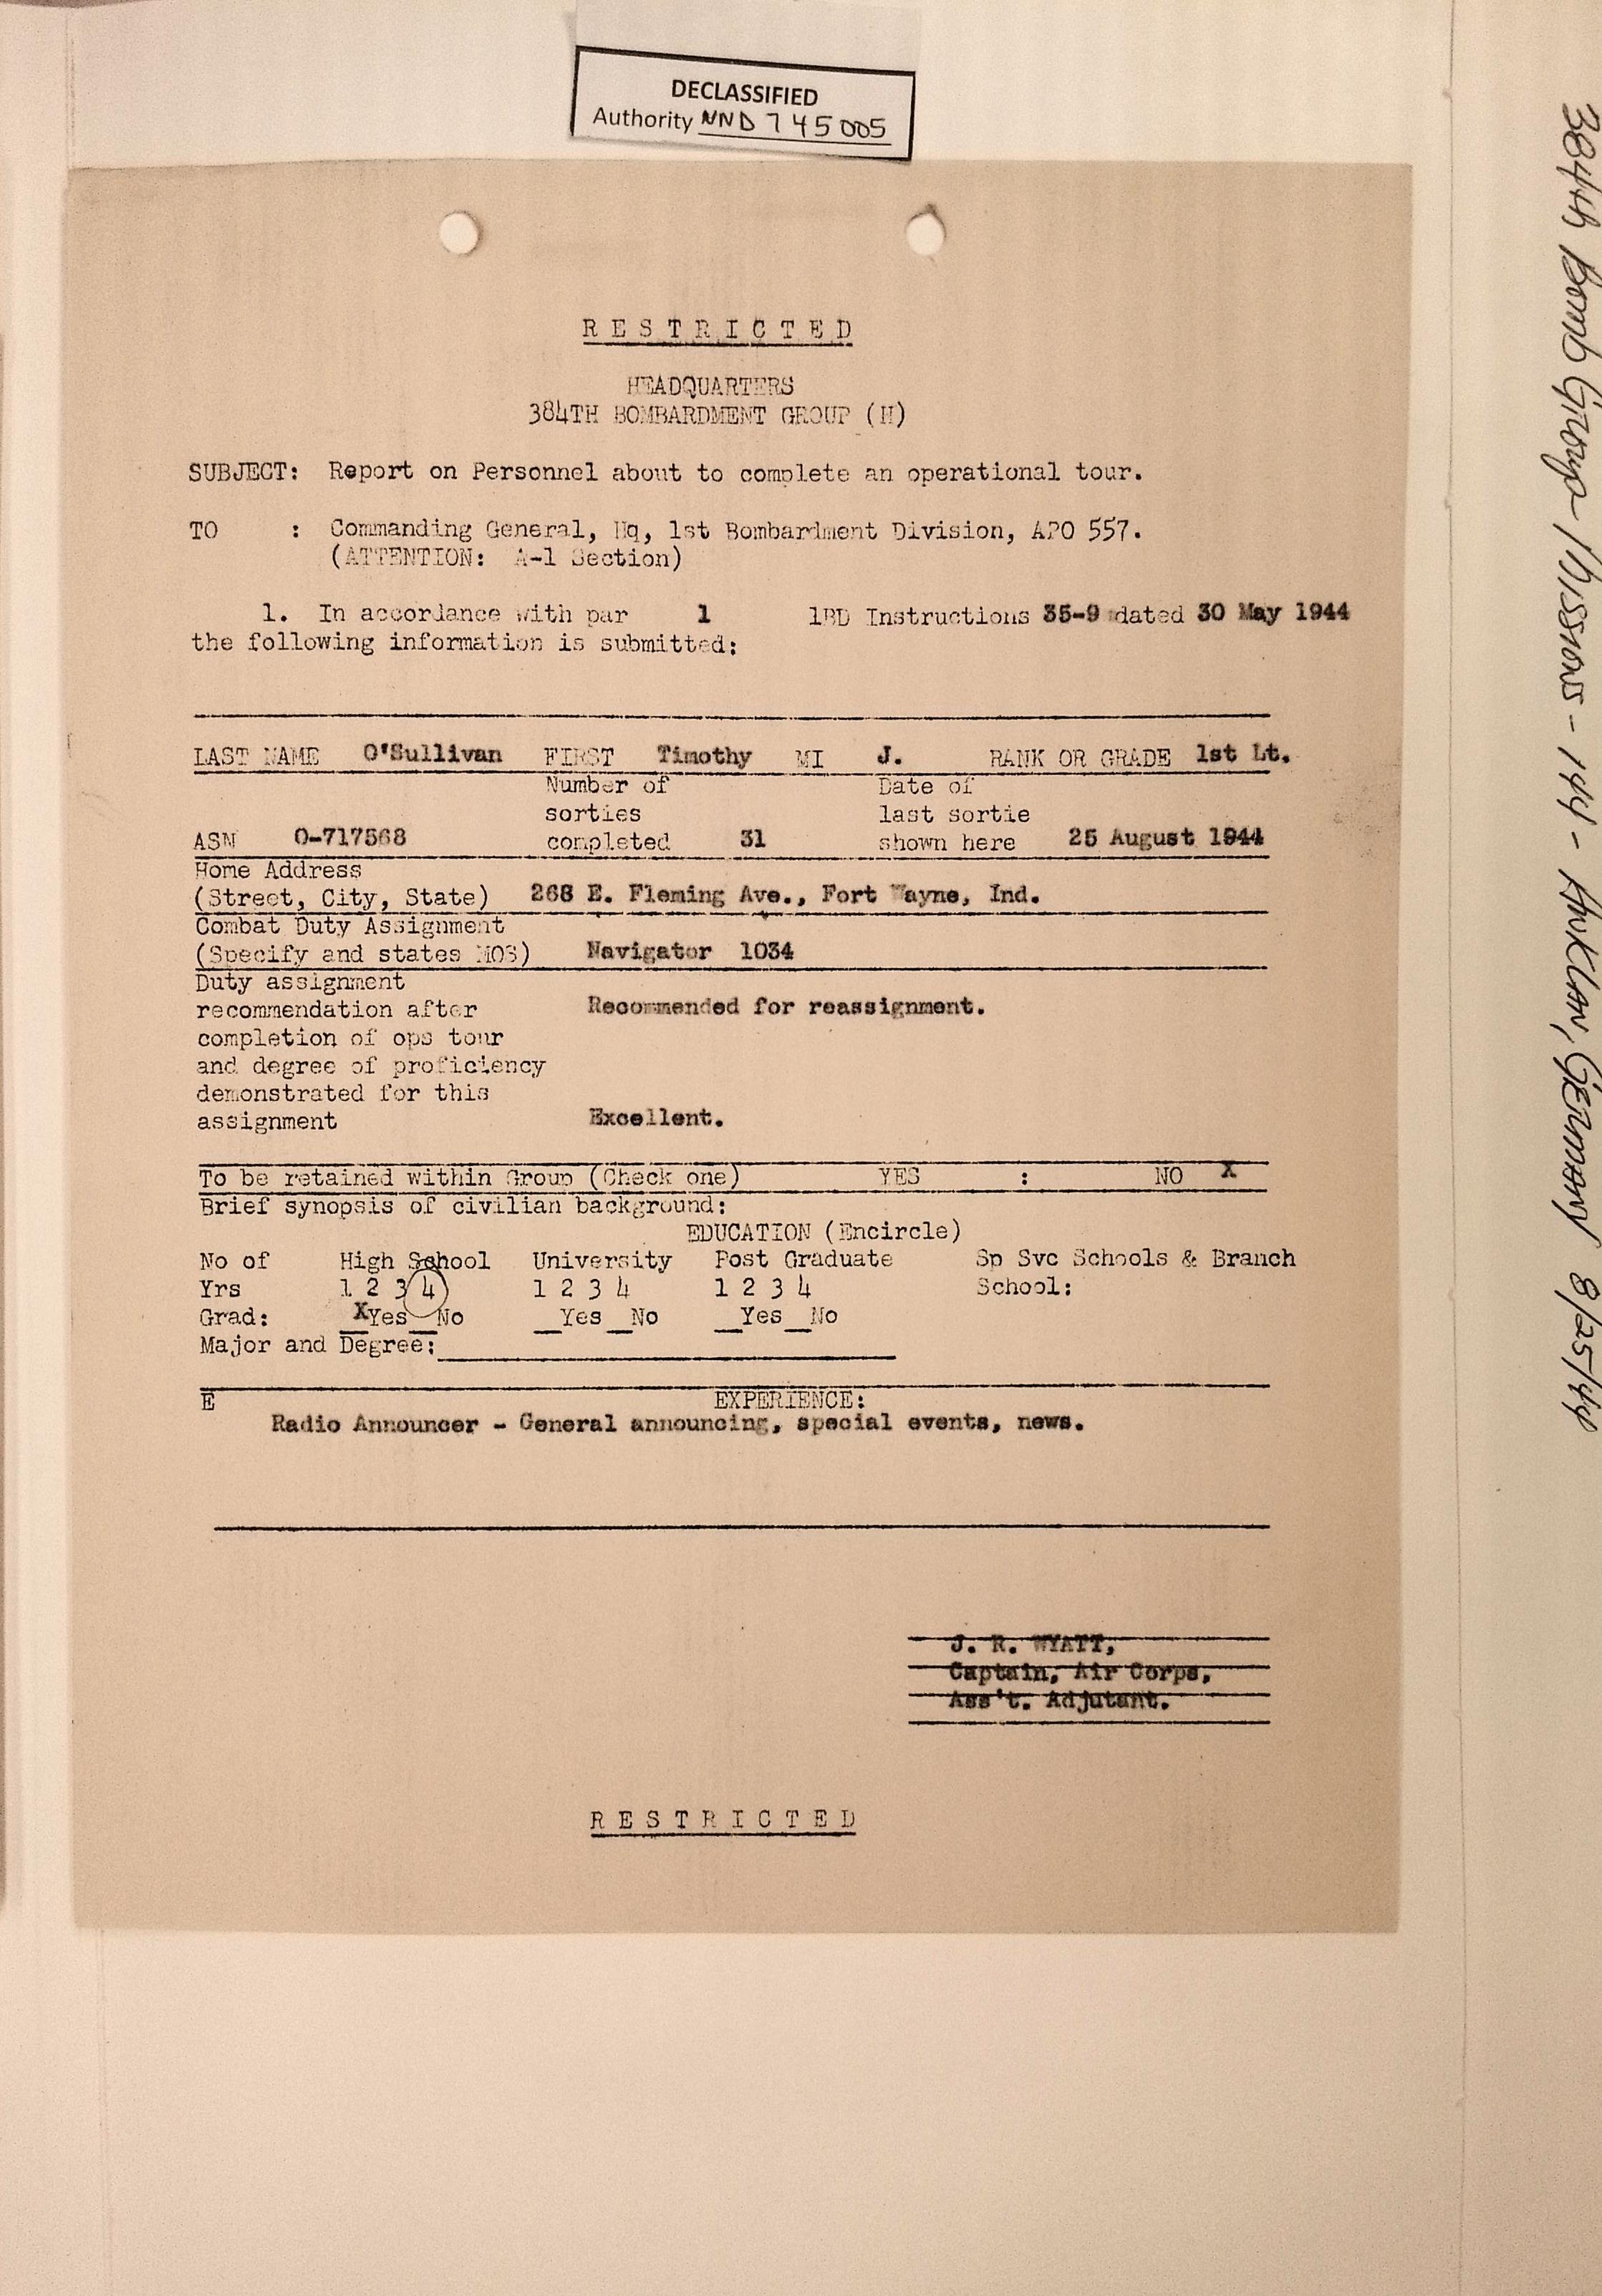 DECLASSIFIED
Authority NND 745005
RESTRICTED
HEADQUARTERS
384TH BOMBARDMENT GROUP (H)
SUBJECT: Report on Personnel about to complete an operational tour.
TO : Commanding General, Hq, 1st Bombardment Division, APO 557.
(ATTENTION: A-1 Section)
1. In accordance with par 1 1BD Instructions 35-9 dated 30 May 1944
the following information is submitted:
LAST NAME O'Sullivan FIRST Timothy MI J. RANK OR GRADE 1st Lt.
Number of Date of
sorties last sortie
ASN O-717568 completed 31 shown here 25 August 1944
Home Address
(Street, City, State) 268 E. Fleming Ave., Fort Wayne, Ind.
Combat Duty Assignment
(Specify and states MOS) Navigator 1034
Duty assignment
recommendation after Recommended for reassignment.
completion of ops tour
and degree of proficiency
demonstrated for this
assignment Excellent.
To be retained within Group (Check one) YES : NO X
Brief synopsis of civilian background:
EDUCATION (Encircle)
No of High School University Post Graduate Sp Svc Schools & Branch
Yrs 1 2 3 4 1 2 3 4 1 2 3 4 School:
Grad: XYes No Yes No Yes No
Major and Degree:
E EXPERIENCE:
Radio Announcer - General announcing, special events, news.
J. R. WYATT,
Captain, Air Corps,
Ass't. Adjutant.
RESTRICTED
384th Bomb Group - Missions - 144 - Anklam, Germany 8/25/44